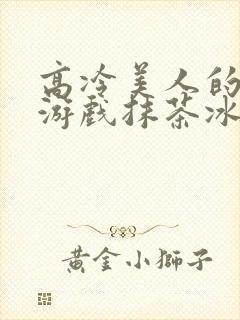 高冷美人的
游戏抹茶冰
黄金小獅子